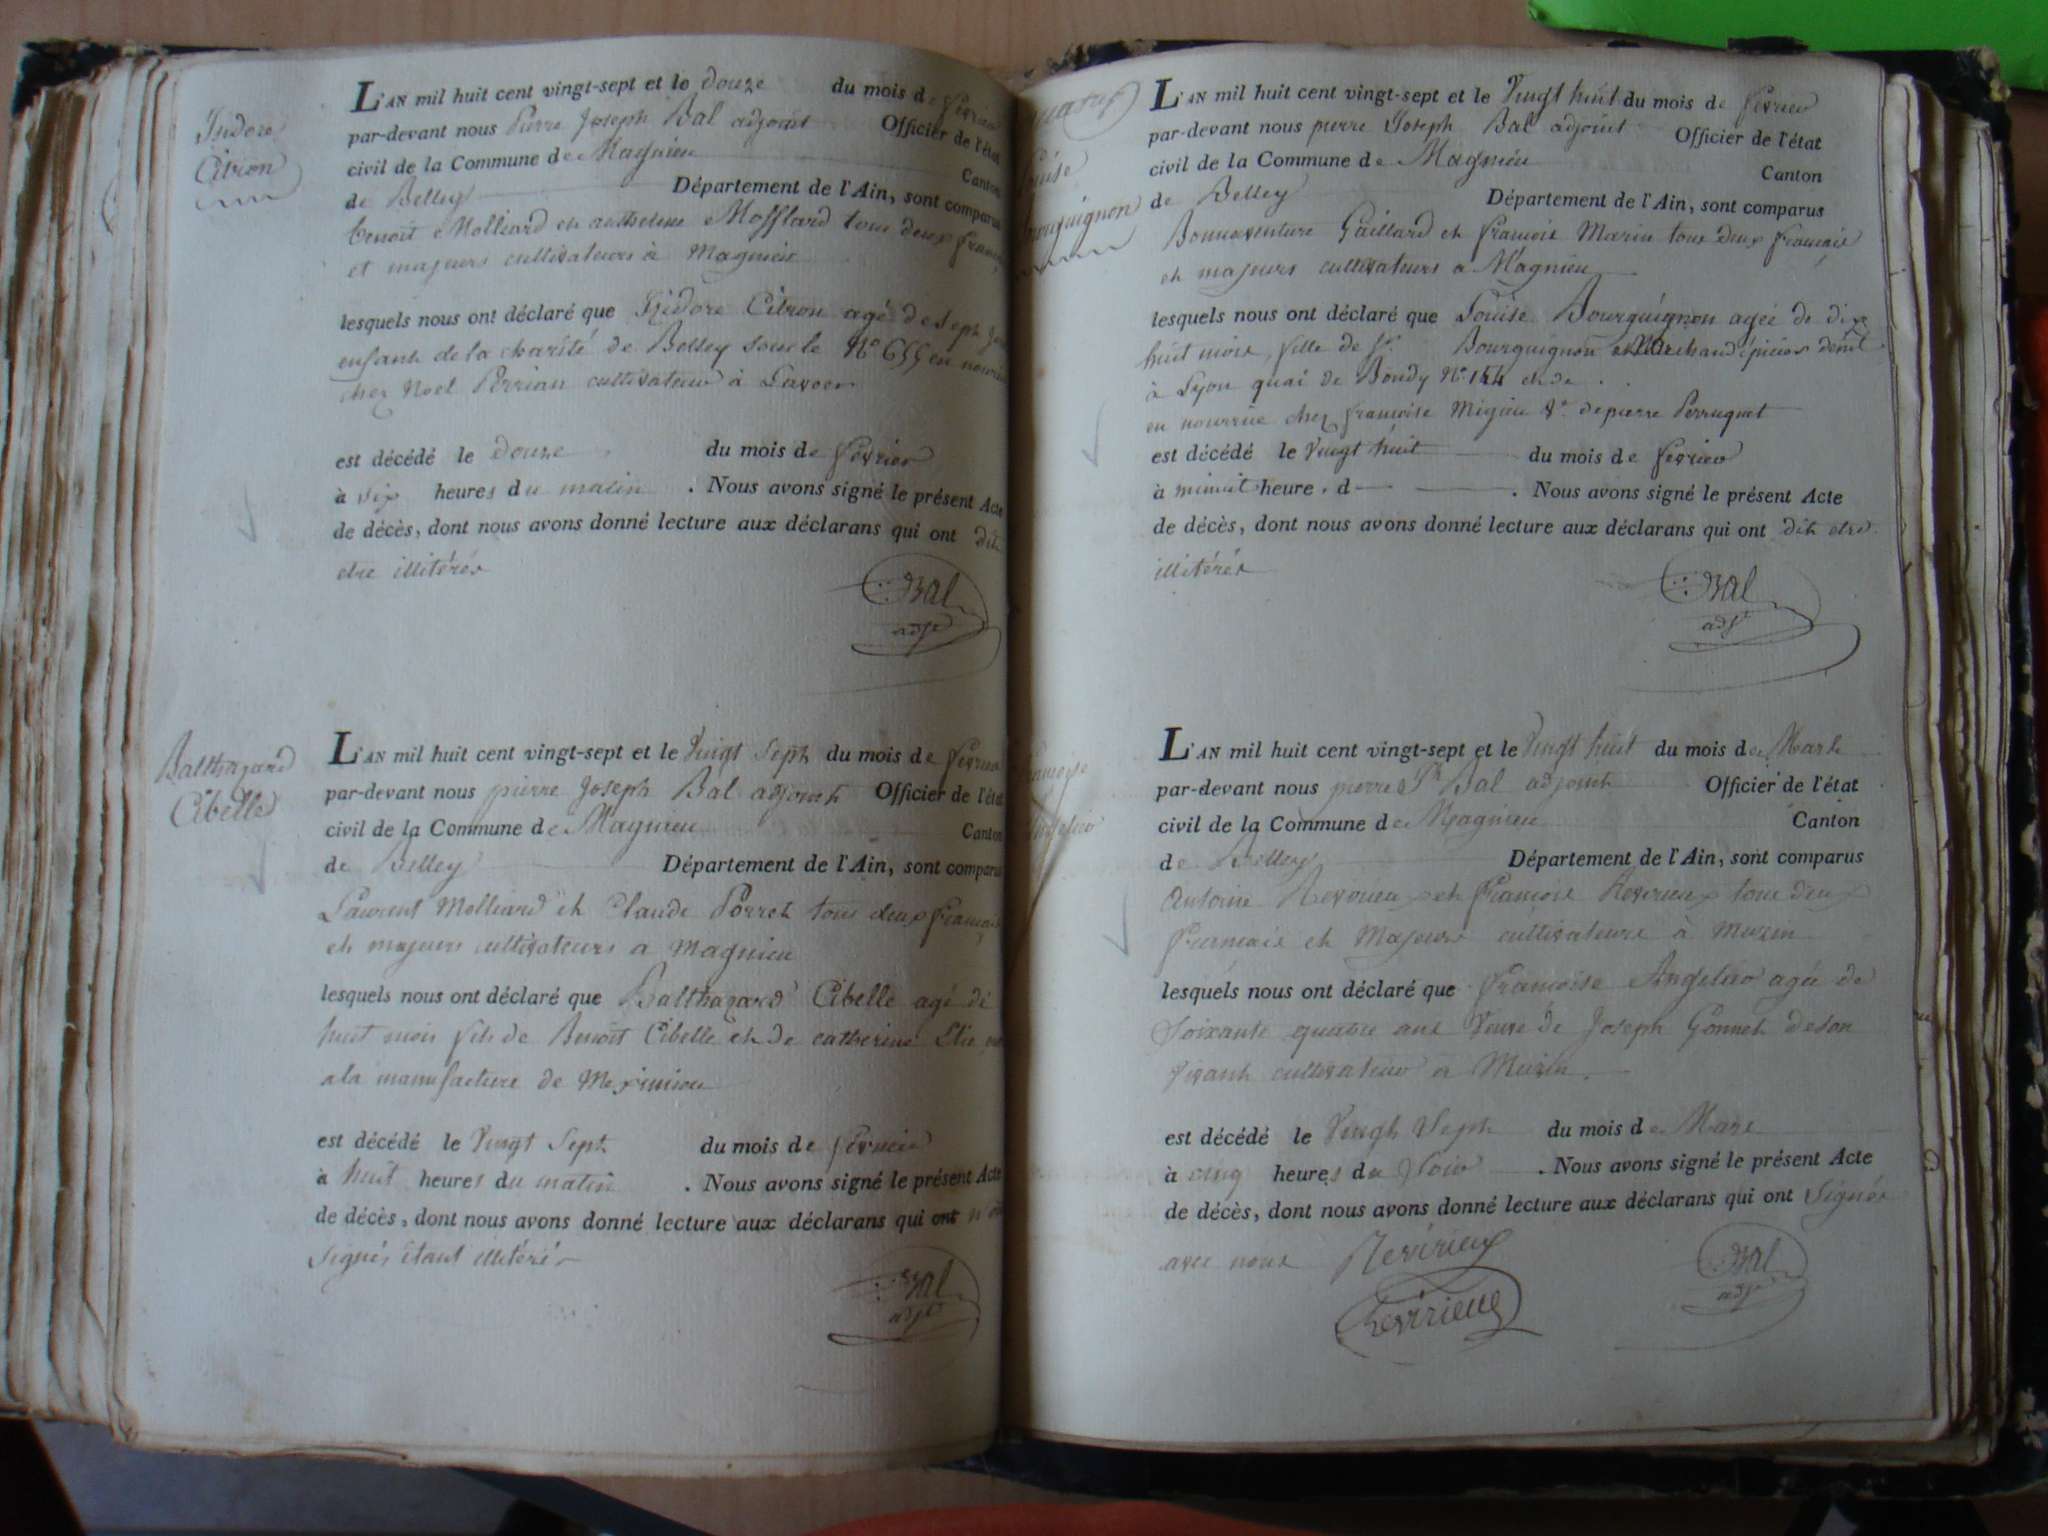 Isidore
Citron
L'AN mil huit cent vingt-sept et le douze du mois de fevrier
par-devant nous Pierre Joseph Bal adjoint Officier de l'état
civil de la Commune de Magnieu Canton
de Belley Département de l'Ain, sont comparus
benoit Molliard et anthelme tous deux
et majeurs cultivateurs à Magnieu
lesquels nous ont déclaré que Isidore Citron agé de Sept
enfant de la charité de Belley sous le N° 655 en
chez Noel Perrian cultivateur à Lavoer
est décédé le douze du mois de fevrier
à Six heures du matin . Nous avons signé le présent Acte
de décès, dont nous avons donné lecture aux déclarans qui ont dit
etre illitérés
Bal
adjt
Balthazard
Cibelle
L'AN mil huit cent vingt-sept et le Vingt Sept du mois de fevrier
par-devant nous pierre Joseph Bal adjoint Officier de l'état
civil de la Commune de Magnieu Canton
de Belley Département de l'Ain, sont comparus
Laurent Molliard et Claude Porret tous deux francais
et majeurs cultivateurs a Magnieu
lesquels nous ont déclaré que Balthazard Cibelle agé de
huit mois fils de Benoit Cibelle et de catherine
a la manufacture de Meximieu
est décédé le Vingt Sept du mois de fevrier
à huit heures du matin . Nous avons signé le présent Acte
de décès, dont nous avons donné lecture aux déclarans qui ont
signés étant illitérés
Bal
adjt
Louise
Bourguignon
L'AN mil huit cent vingt-sept et le Vingt huit du mois de fevrier
par-devant nous pierre Joseph Bal adjoint Officier de l'état
civil de la Commune de Magnieu Canton
de Belley Département de l'Ain, sont comparus
Bonnaventure Gaillard et francois Marin tous deux francais
et majeurs cultivateurs a Magnieu
lesquels nous ont déclaré que Louise Bourguignon agée de dix
huit mois, fille de Sr Bourguignon Marchand épicier demt
à Lyon quai de Bondy N° 144 et de .
en nourrice chez francoise Migieu Ve de pierre Perruquet
est décédé le Vingt huit du mois de fevrier
à minuit heure . d . Nous avons signé le présent Acte
de décès, dont nous avons donné lecture aux déclarans qui ont dit etre
illitérés
Bal
adjt
L'AN mil huit cent vingt-sept et le Vingt huit du mois de Mars
par-devant nous pierre Jh Bal adjoint Officier de l'état
civil de la Commune de Magnieu Canton
de Belley Département de l'Ain, sont comparus
Antoine Revirieux et francois Revirieux tous deux
francais et Majeurs cultivateurs à Musin
lesquels nous ont déclaré que francoise Angelier agée de
Soixante quatre ans Veuve de Joseph Gonnet de son
vivant cultivateur a Musin.
est décédé le Vingt Sept du mois de Mars
à cinq heures du Soir . Nous avons signé le présent Acte
de décès, dont nous avons donné lecture aux déclarans qui ont Signés
avec nous Revirieux Bal
Revirieux adjt